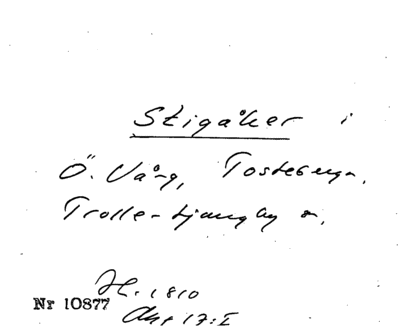 Stigåker i
Ö. Vång, Tosteberga,
Trolle-Ljungby s.
H. 1810
Akt 17:I
Nr 10877